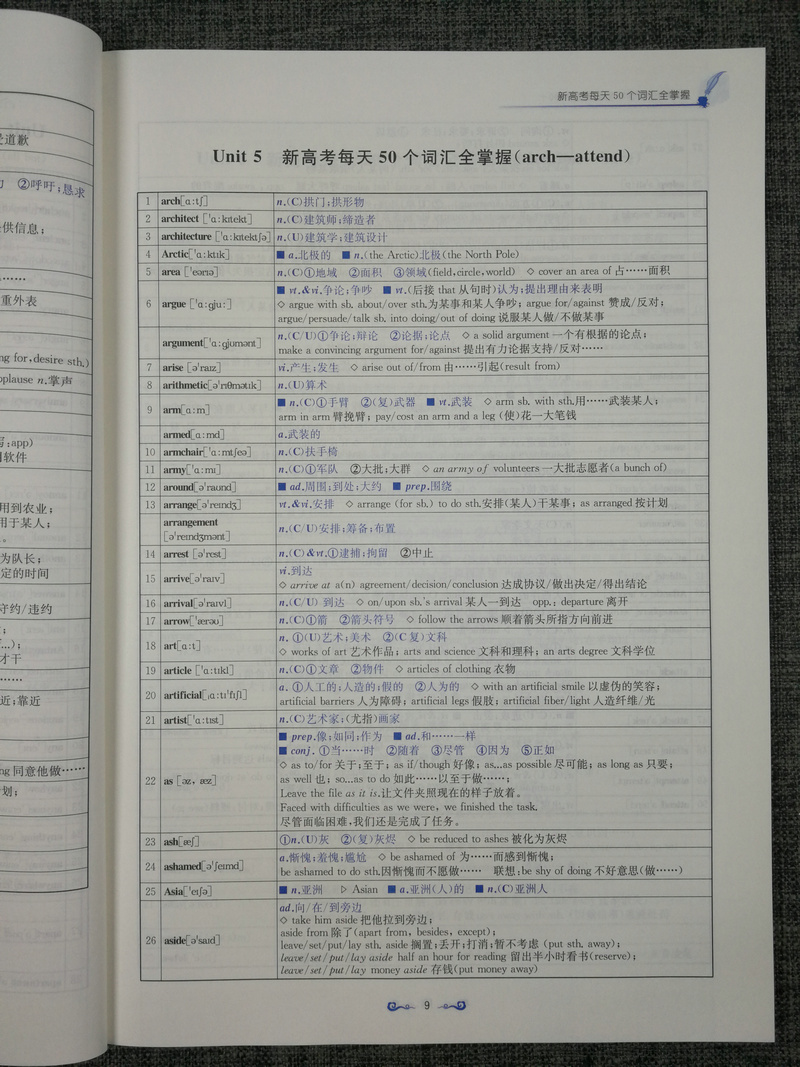 道歉
②呼吁;恳求
供信息;
……
重外表
ng for,desire sth.)
pplause n.掌声
:app)
软件
用到农业;
用于某人;
。
为队长;
定的时间
守约/违约
;
…);
才干
……
近;靠近
ng 同意他做……
划;
新高考每天50个词汇全掌握
Unit 5 新高考每天50个词汇全掌握(arch—attend)
1 arch[ɑːtʃ] n.(C)拱门;拱形物
2 architect [ˈɑːkɪtekt] n.(C)建筑师;缔造者
3 architecture [ˈɑːkɪtektʃə] n.(U)建筑学;建筑设计
4 Arctic[ˈɑːktɪk] ■ a.北极的 ■ n.(the Arctic)北极(the North Pole)
5 area [ˈeərɪə] n.(C)①地域 ②面积 ③领域(field,circle,world) ◇ cover an area of 占……面积
6 argue [ˈɑːgjuː] ■ vt.&vi.争论;争吵 ■ vt.(后接 that 从句时)认为;提出理由来表明
◇ argue with sb. about/over sth.为某事和某人争吵; argue for/against 赞成/反对;
argue/persuade/talk sb. into doing/out of doing 说服某人做/不做某事
argument[ˈɑːgjʊmənt] n.(C/U)①争论;辩论 ②论据;论点 ◇ a solid argument 一个有根据的论点;
make a convincing argument for/against 提出有力论据支持/反对……
7 arise [əˈraɪz] vi.产生;发生 ◇ arise out of/from 由……引起(result from)
8 arithmetic[əˈrɪθmətɪk] n.(U)算术
9 arm[ɑːm] ■ n.(C)①手臂 ②(复)武器 ■ vt.武装 ◇ arm sb. with sth.用……武装某人;
arm in arm 臂挽臂; pay/cost an arm and a leg (使)花一大笔钱
armed[ɑːmd] a.武装的
10 armchair[ˈɑːmtʃeə] n.(C)扶手椅
11 army[ˈɑːmɪ] n.(C)①军队 ②大批;大群 ◇ an army of volunteers 一大批志愿者(a bunch of)
12 around[əˈraʊnd] ■ ad.周围;到处;大约 ■ prep.围绕
13 arrange[əˈreɪndʒ] vt.&vi.安排 ◇ arrange (for sb.) to do sth.安排(某人)干某事; as arranged 按计划
arrangement
[əˈreɪndʒmənt] n.(C/U)安排;筹备;布置
14 arrest [əˈrest] n.(C)&vt.①逮捕;拘留 ②中止
15 arrive[əˈraɪv] vi.到达
◇ arrive at a(n) agreement/decision/conclusion 达成协议/做出决定/得出结论
16 arrival[əˈraɪvl] n.(C/U) 到达 ◇ on/upon sb.'s arrival 某人一到达 opp.: departure 离开
17 arrow[ˈærəʊ] n.(C)①箭 ②箭头符号 ◇ follow the arrows 顺着箭头所指方向前进
18 art[ɑːt] n. ①(U)艺术;美术 ②(C 复)文科
◇ works of art 艺术作品; arts and science 文科和理科; an arts degree 文科学位
19 article [ˈɑːtɪkl] n.(C)①文章 ②物件 ◇ articles of clothing 衣物
20 artificial[ˌɑːtɪˈfɪʃl] a. ①人工的;人造的;假的 ②人为的 ◇ with an artificial smile 以虚伪的笑容;
artificial barriers 人为障碍; artificial legs 假肢; artificial fiber/light 人造纤维/光
21 artist[ˈɑːtɪst] n.(C)艺术家;(尤指)画家
22 as [əz, æz] ■ prep.像;如同;作为 ■ ad.和……一样
■ conj. ①当……时 ②随着 ③尽管 ④因为 ⑤正如
◇ as to/for 关于;至于; as if/though 好像; as...as possible 尽可能; as long as 只要;
as well 也; so...as to do 如此……以至于做……;
Leave the file as it is.让文件夹照现在的样子放着。
Faced with difficulties as we were, we finished the task.
尽管面临困难,我们还是完成了任务。
23 ash[æʃ] ①n.(U)灰 ②(复)灰烬 ◇ be reduced to ashes 被化为灰烬
24 ashamed[əˈʃeɪmd] a.惭愧;羞愧;尴尬 ◇ be ashamed of 为……而感到惭愧;
be ashamed to do sth.因惭愧而不愿做…… 联想:be shy of doing 不好意思(做……)
25 Asia[ˈeɪʃə] ■ n.亚洲 ▷ Asian ■ a.亚洲(人)的 ■ n.(C)亚洲人
26 aside[əˈsaɪd] ad.向/在/到旁边
◇ take him aside 把他拉到旁边;
aside from 除了(apart from, besides, except);
leave/set/put/lay sth. aside 搁置;丢开;打消;暂不考虑 (put sth. away);
leave/set/put/lay aside half an hour for reading 留出半小时看书(reserve);
leave/set/put/lay money aside 存钱(put money away)
9